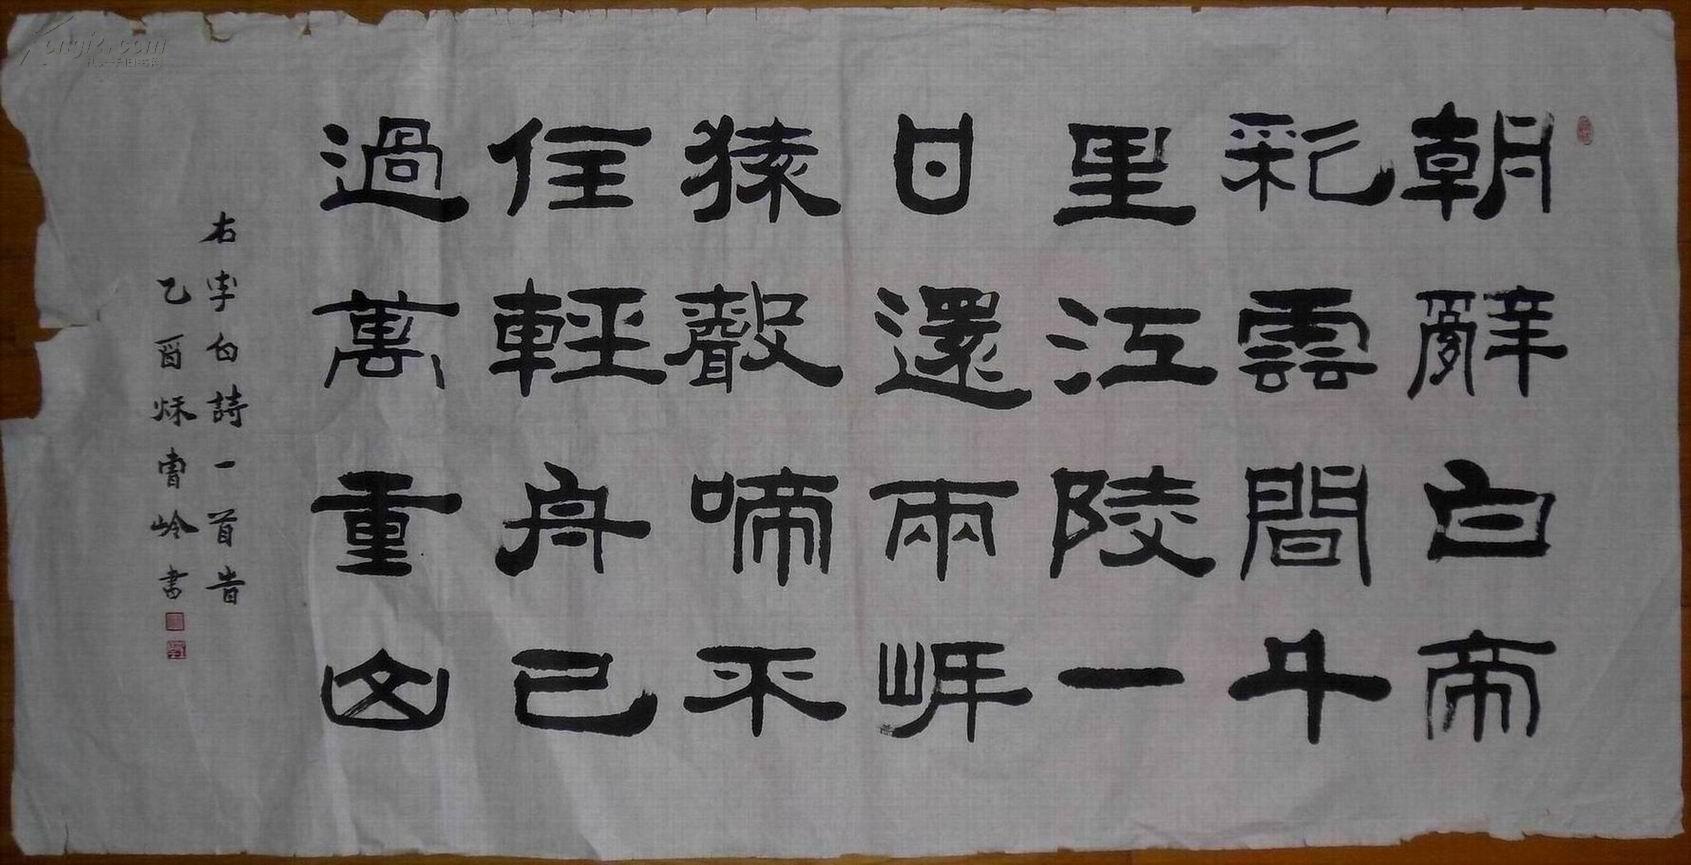 朝辭白帝
彩雲間千
里江陵一
日還兩岸
猿聲啼不
住輕舟已
過萬重山
右李白詩一首旹
乙酉秌岭書